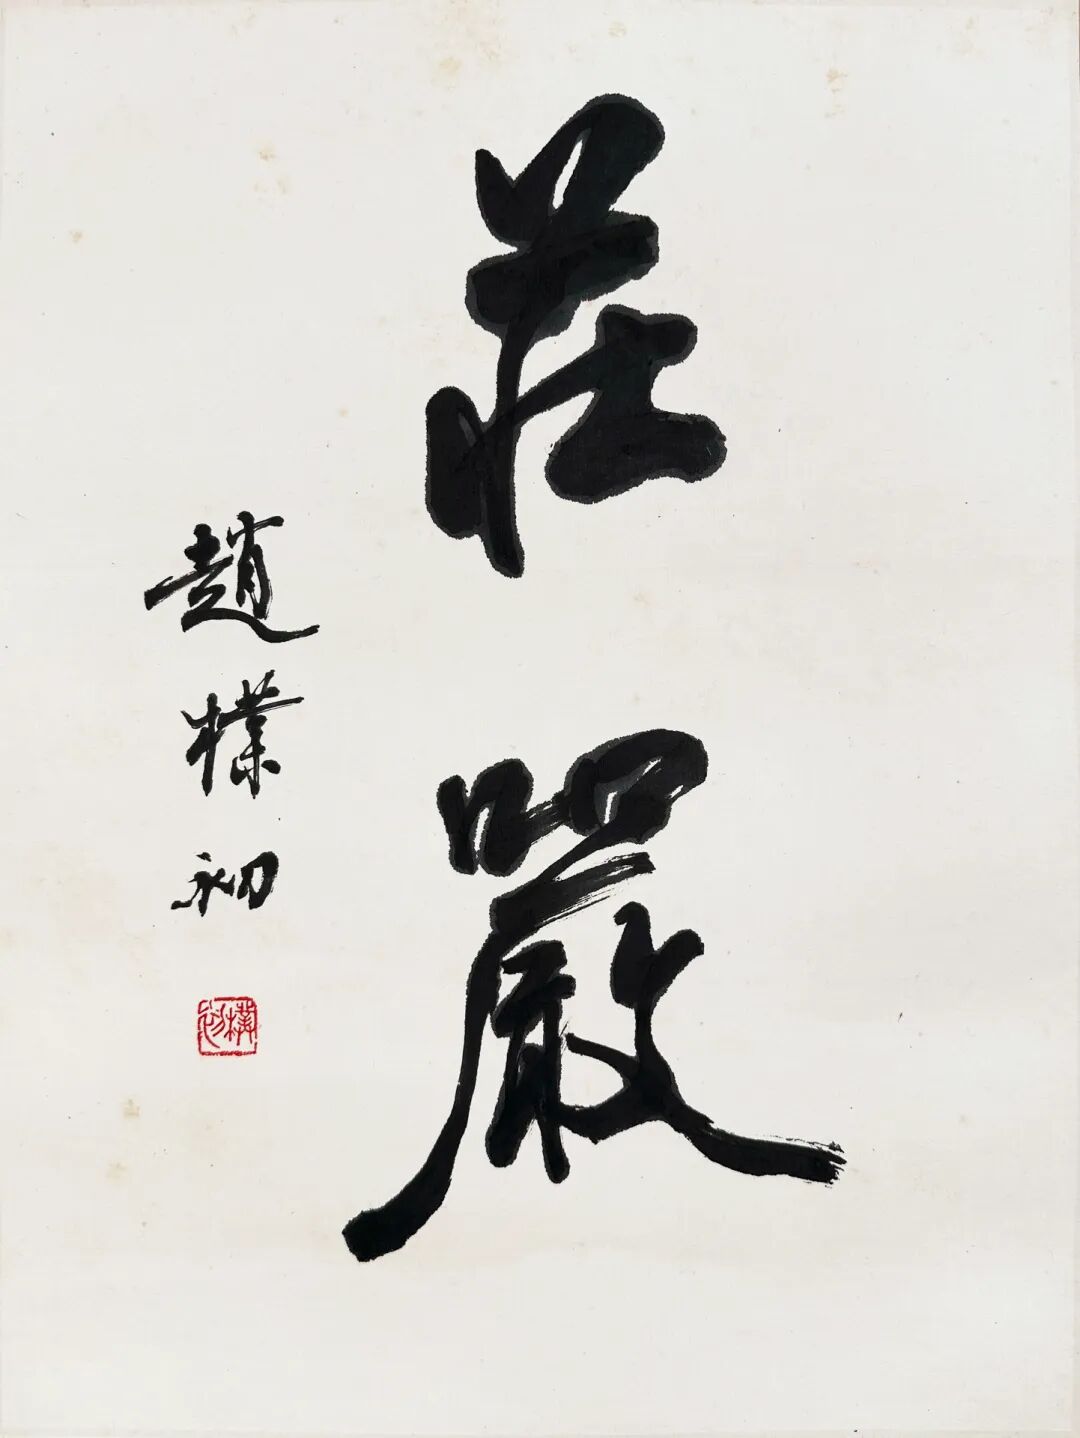 莊嚴
趙樸初
樸初